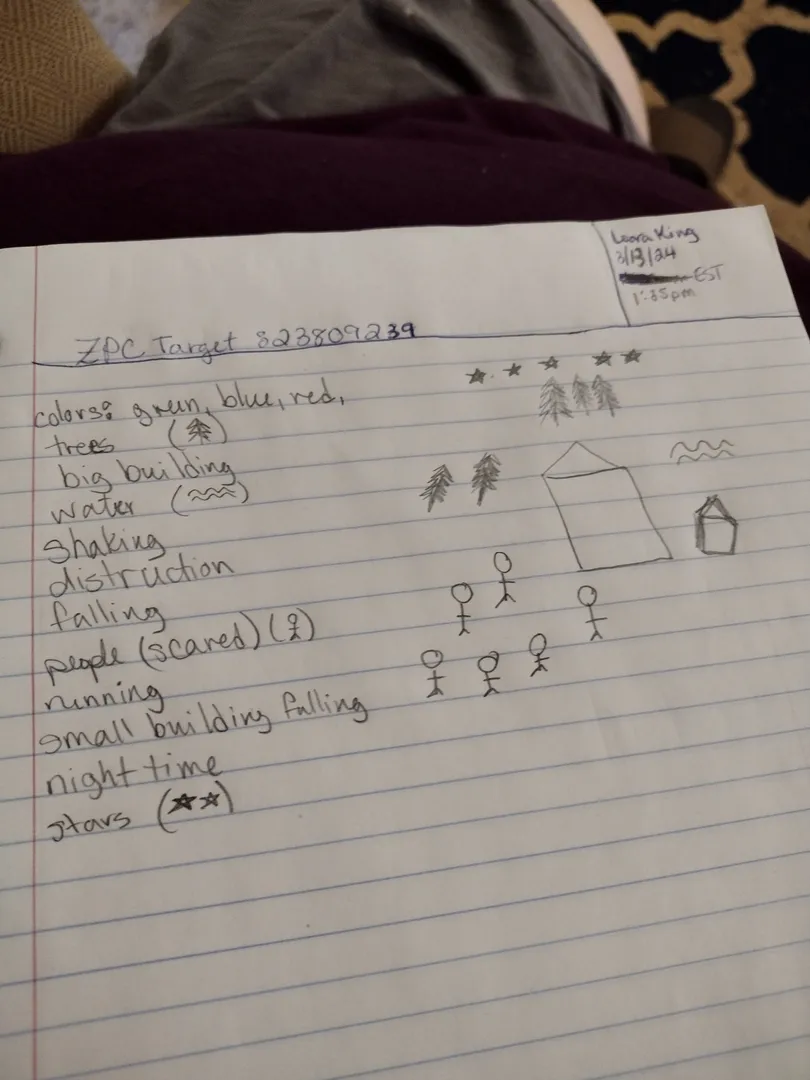 Leora King
3/13/24
EST
1:35pm
ZPC Target 823809239
colors: green, blue, red,
trees ( )
big building
water ( )
shaking
distruction
falling
people (scared) ( )
running
small building falling
night time
stars ( )